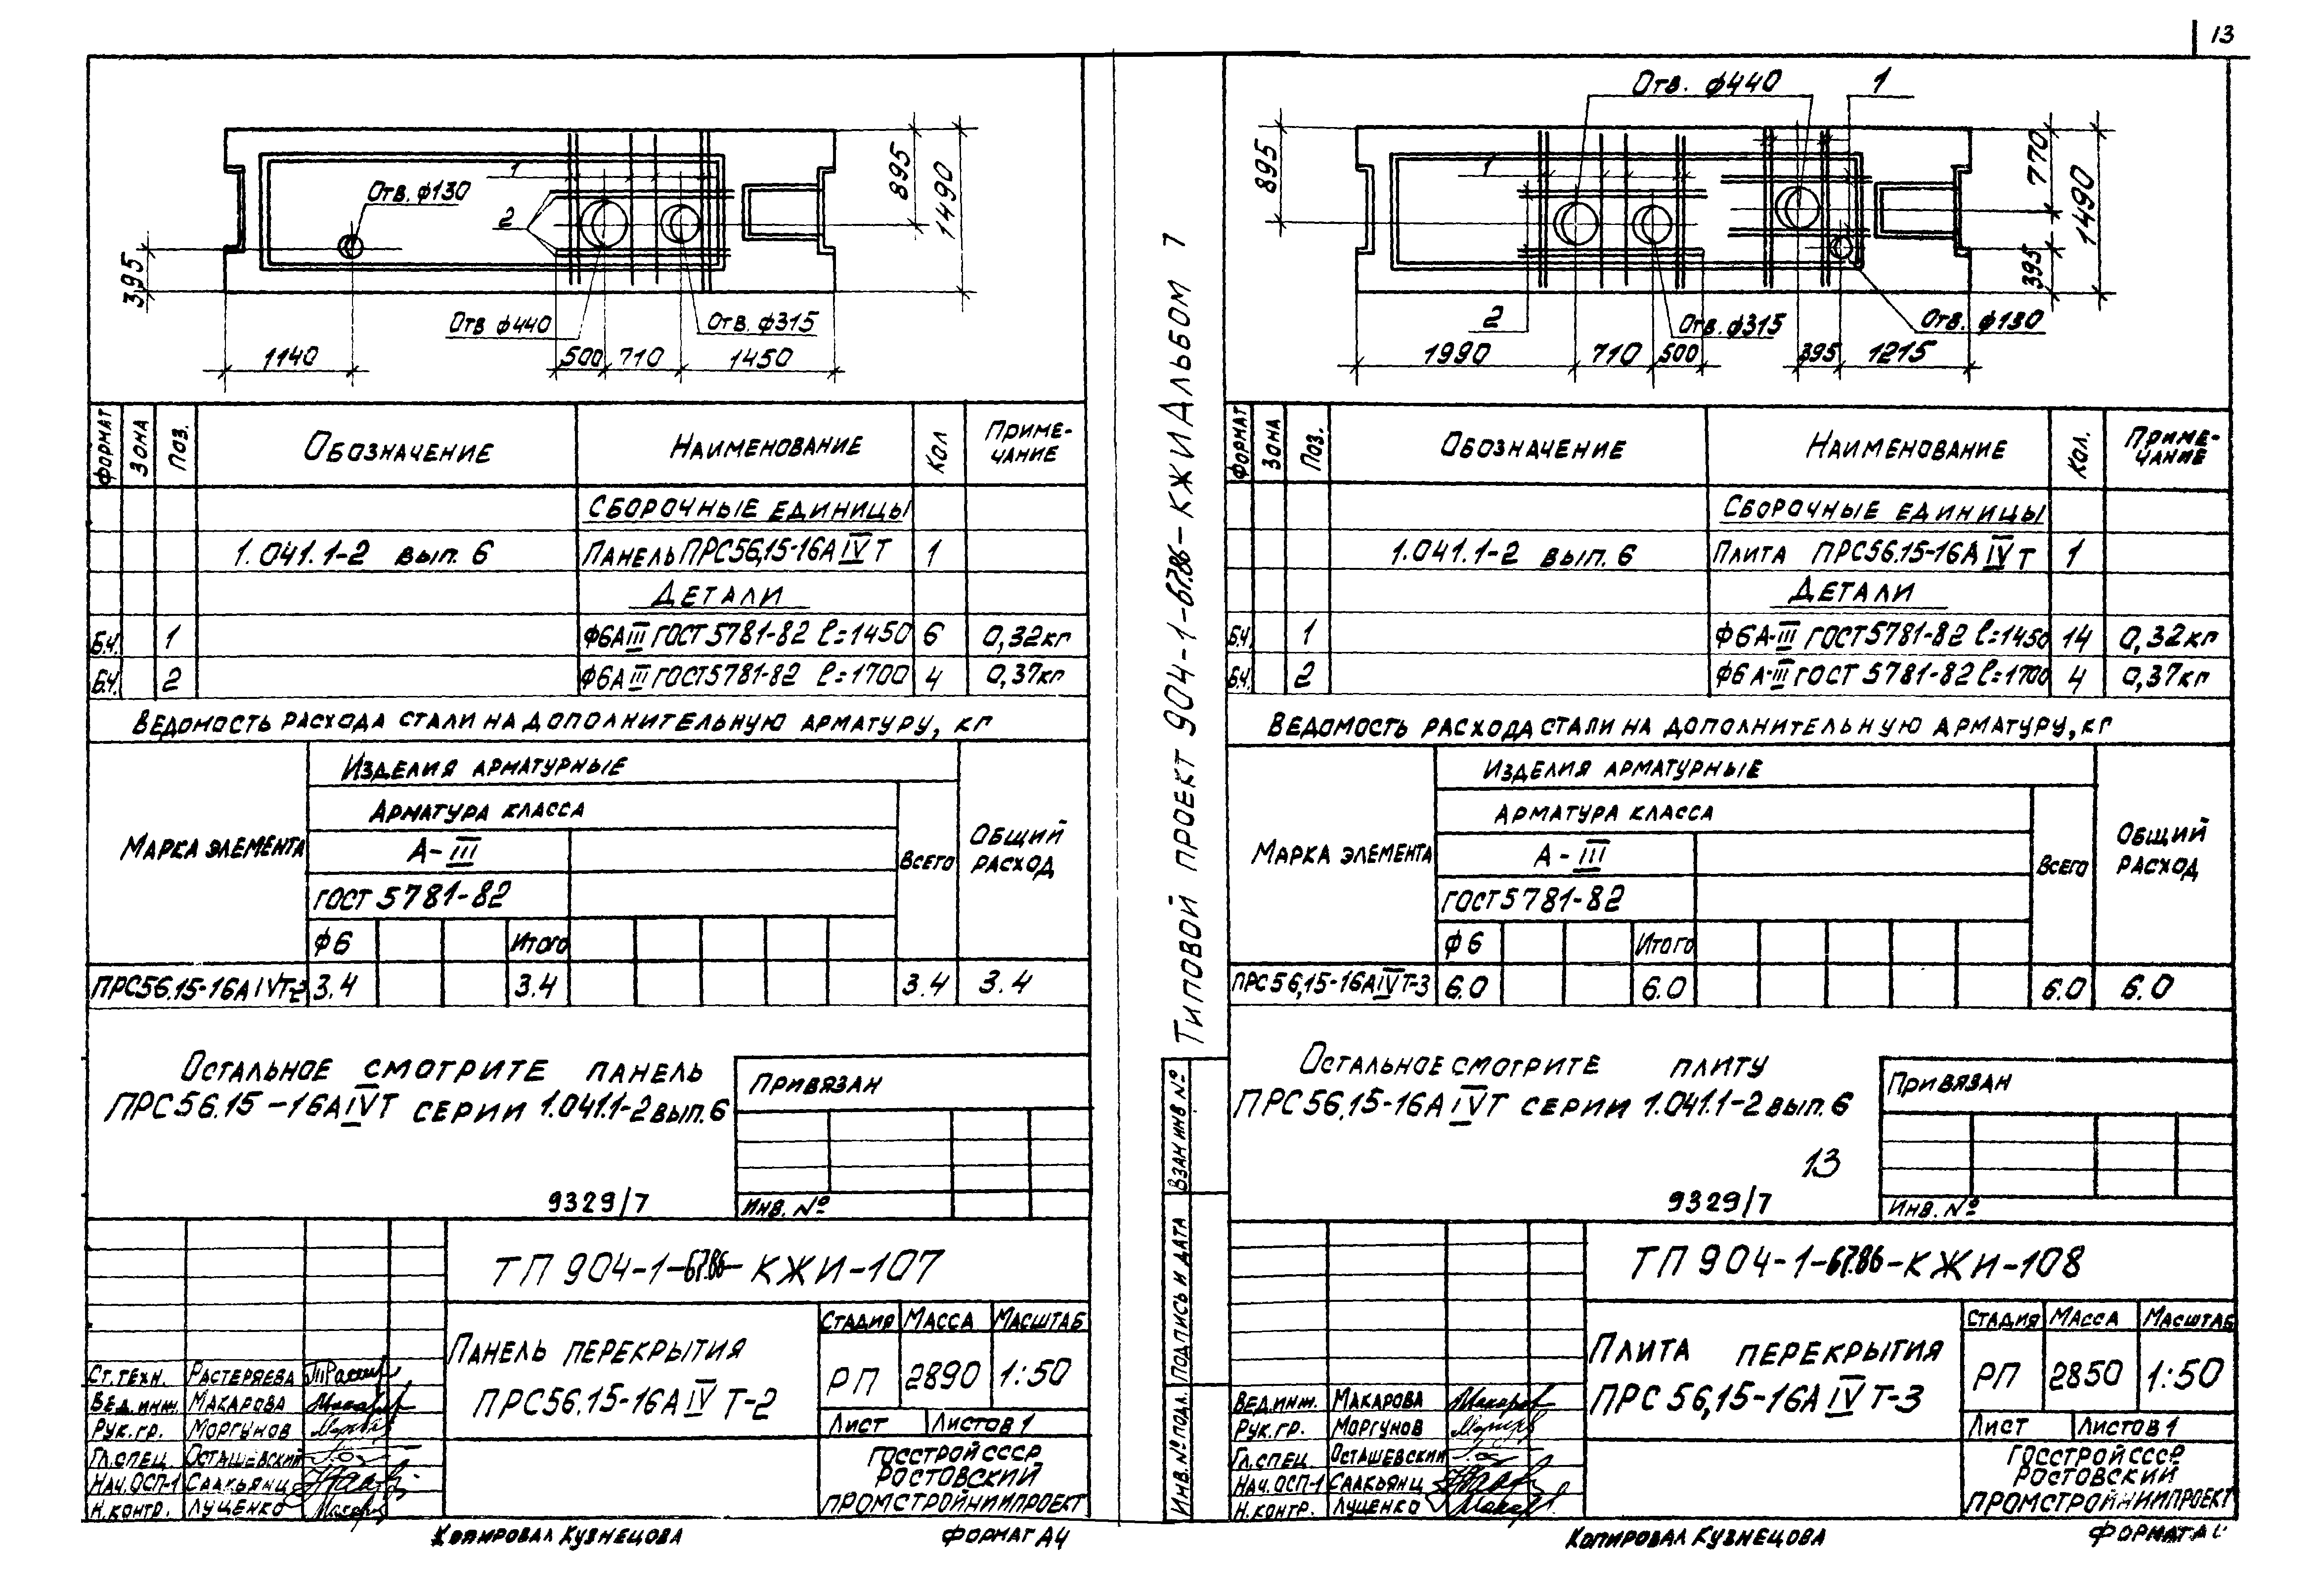 13
Отв. ф130
1
2
895
1490
395
Отв ф440
Отв. ф315
1140
500
710
1450
Формат
Зона
Поз.
Обозначение
Наименование
Кол
Приме-
чание
Сборочные единицы
1.041.1-2 вып. 6
Панель ПРС56,15-16АIVТ
1
Детали
Б.Ч.
1
ф6АIII ГОСТ 5781-82 ℓ=1450
6
0,32кг
Б.Ч.
2
ф6АIII ГОСТ 5781-82 ℓ=1700
4
0,37кг
Ведомость расхода стали на дополнительную арматуру, кг
Марка элемента
Изделия арматурные
Арматура класса
А-III
ГОСТ 5781-82
ф6
Итого
Всего
Общий
расход
ПРС56.15-16АIVТ-2
3.4
3.4
3.4
3.4
Остальное смотрите панель
ПРС56.15-16АIVТ серии 1.041.1-2 вып. 6
Привязан
Инв. №
9329/7
ТП 904-1-67.86-КЖИ-107
Панель перекрытия
ПРС56.15-16АIVТ-2
Стадия
Масса
Масштаб
РП
2890
1:50
Лист
Листов 1
Госстрой СССР
Ростовский
Промстройниипроект
Ст.техн. Растеряева
Вед.инж. Макарова
Рук.гр. Моргунов
Гл.спец. Осташевский
Нач.ОСП-1 Саакьянц
Н.контр. Луценко
Копировал Кузнецова
Формат А4
Типовой проект 904-1-67.86-КЖИ Альбом 7
Взам инв №
Подпись и дата
Инв. № подл.
Отв. ф440
1
895
1
2
770
1490
395
Отв. ф315
Отв. ф130
1990
710
500
395
1215
Формат
Зона
Поз.
Обозначение
Наименование
Кол.
Приме-
чание
Сборочные единицы
1.041.1-2 вып. 6
Плита ПРС56.15-16АIVТ
1
Детали
Б.Ч.
1
ф6А-III ГОСТ 5781-82 ℓ=1450
14
0,32кг
Б.Ч.
2
ф6А-III ГОСТ 5781-82 ℓ=1700
4
0,37кг
Ведомость расхода стали на дополнительную арматуру, кг
Марка элемента
Изделия арматурные
Арматура класса
А-III
ГОСТ 5781-82
ф6
Итого
Всего
Общий
расход
ПРС56,15-16АIVТ-3
6.0
6.0
6.0
6.0
Остальное смотрите плиту
ПРС56,15-16АIVТ серии 1.041.1-2 вып. 6
13
Привязан
Инв. №
9329/7
ТП 904-1-67.86-КЖИ-108
Плита перекрытия
ПРС56,15-16АIVТ-3
Стадия
Масса
Масштаб
РП
2850
1:50
Лист
Листов 1
Госстрой СССР
Ростовский
Промстройниипроект
Вед.инж. Макарова
Рук.гр. Моргунов
Гл.спец. Осташевский
Нач.ОСП-1 Саакьянц
Н.контр. Луценко
Копировал Кузнецова
Формат А4